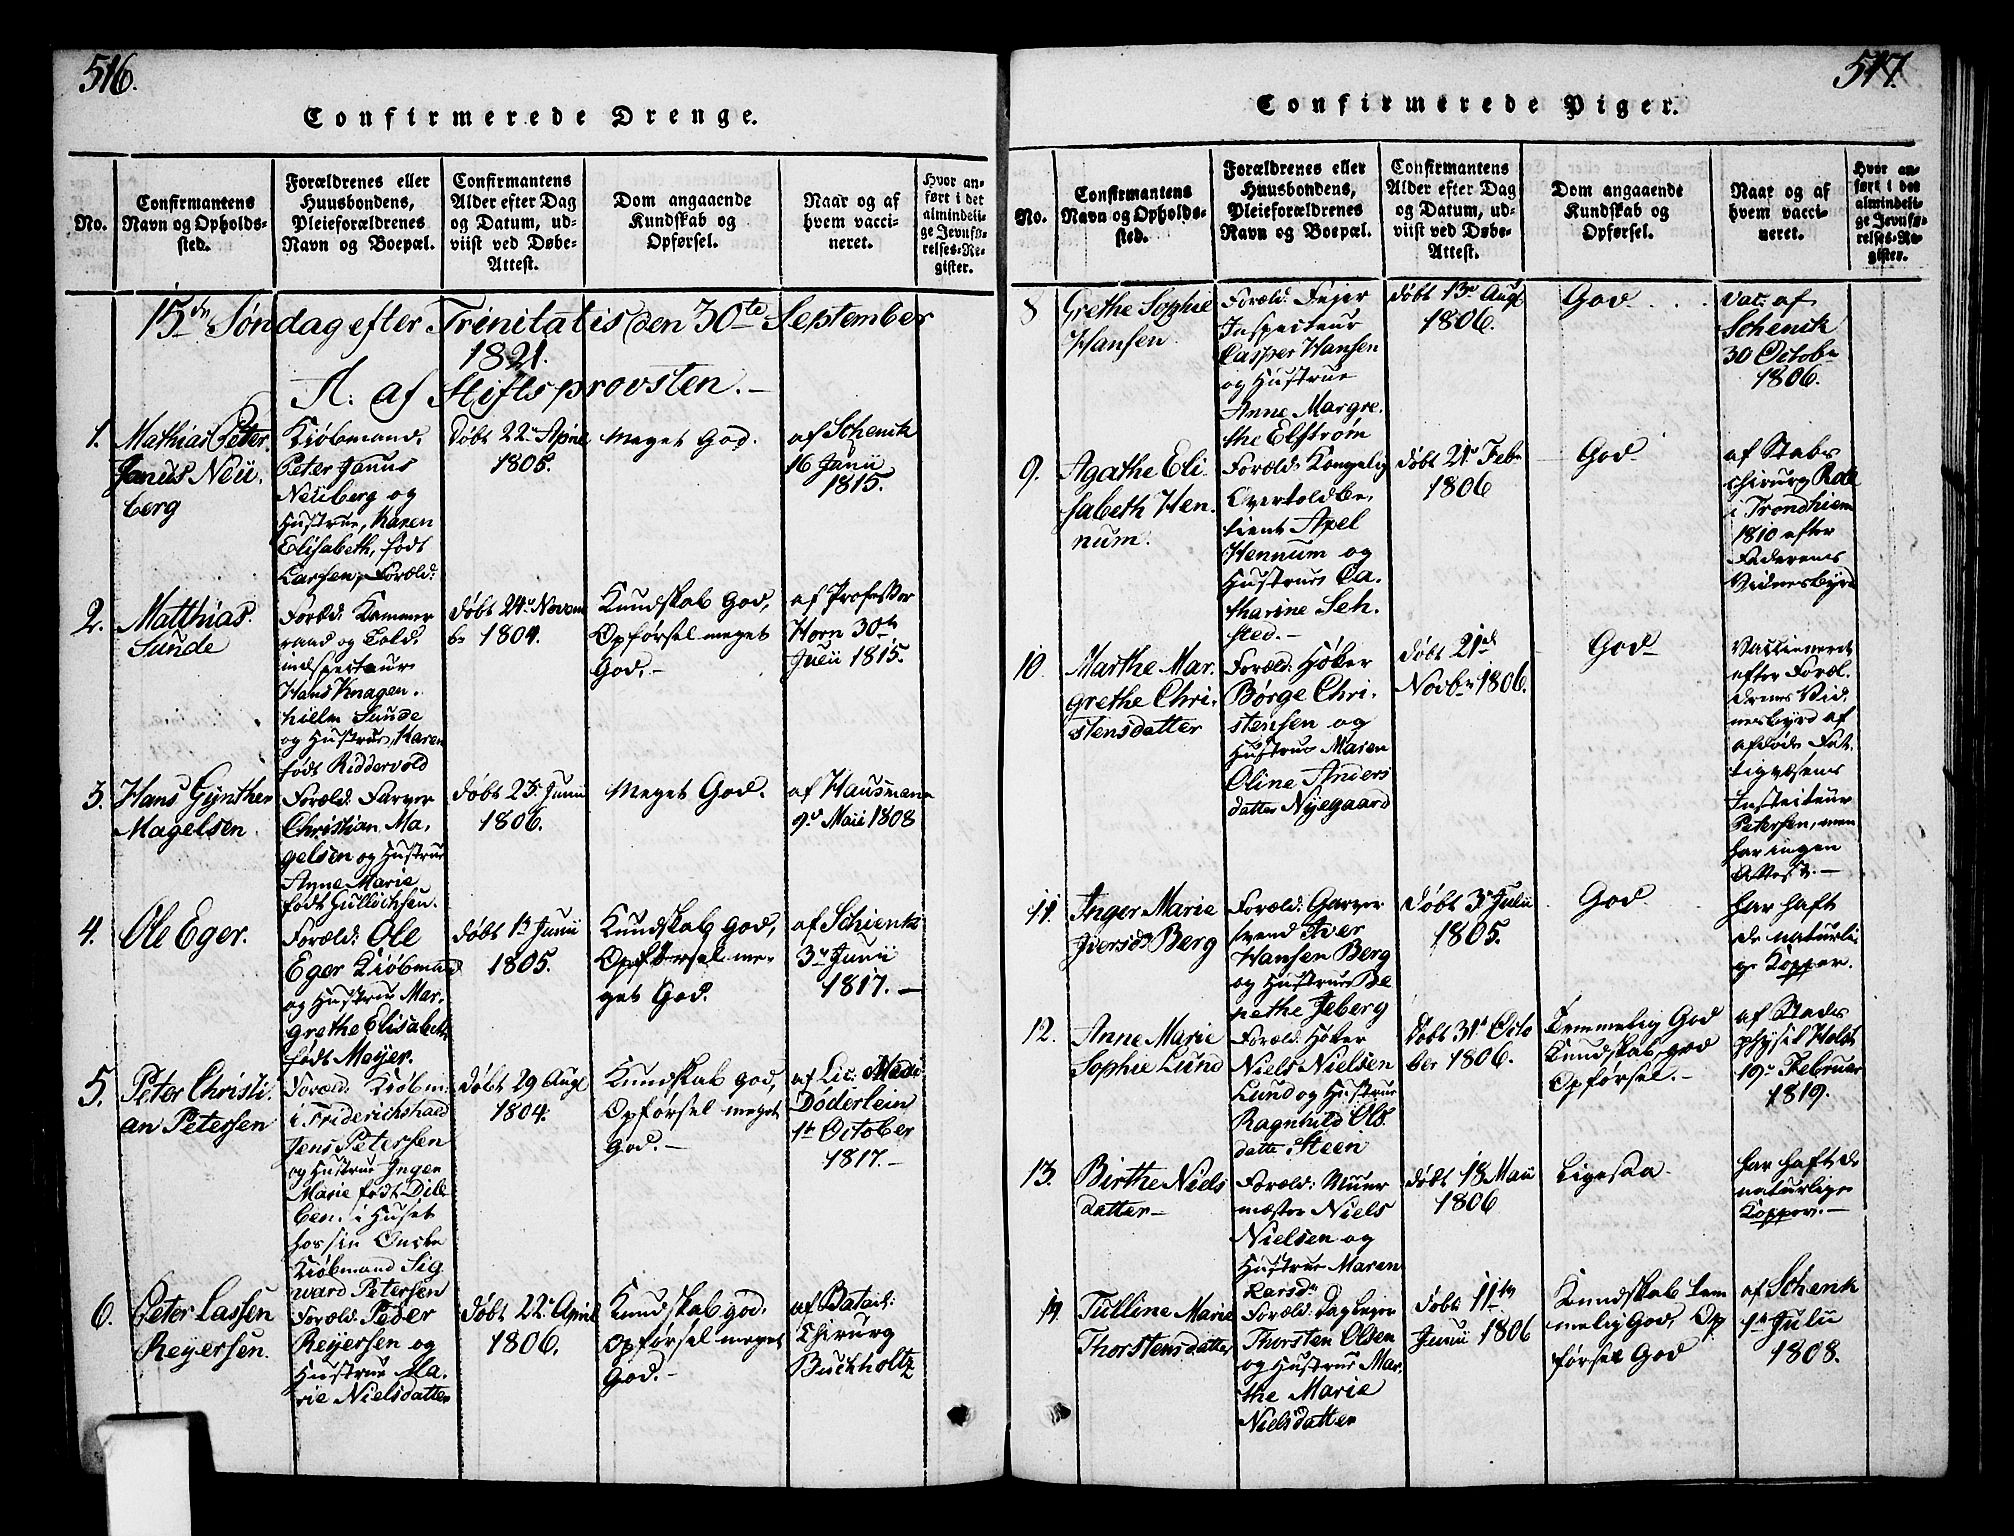 516.
Confirmerede Drenge.
No.
Confirmantens
Navn og Opholds-
sted.
Forældrenes eller
Huusbondens,
Pleieforældrenes
Navn og Boepæl.
Confirmantens
Alder efter Dag
og Datum, ud-
viist ved Døbe-
Attest.
Dom angaaende
Kundskab og
Opførsel.
Naar og af
hvem vacci-
neret.
Hvor an-
ført i det
almindeli-
ge Jevnfø-
relses-Re-
gister.
15de Søndag efter Trinitatis den 30te September
1821.
A. af Stiftsprovsten.
1.
Mathias Peter
Janus Neu
berg
Kiöbmand
Peter Janus
Neuberg og
Hustrue, Karen
Elisabeth, født
Larsen, Foræld:
Döbt 22 April
1805.
Meget God.
af Schenck
16 Junii
1815.
2.
Matthias
Sunde
Foræld: Kammer
raad og Told
inspecteur
Hans Knagen
hielm Sunde
og Hustrue, Karen
født Riddervold
döbt 24 Novem
br 1804.
Kundskab God,
Opförsel meget
God.-
af Professor
Horn 30te
Juni 1815.
3.
Hans Gynther
Magelsen
Foræld: Farver
Christian Ma,
gelsen og Hustrue
Anne Marie
født
döbt 23 Junii
1806.
Meget God.
af Hausmann
9de Maii 1808
4.
Ole Eger.
Foræld: Ole
Eger Kiöbmand
og Hustrue Mar,
grethe Elisabeth
født Meyer.
döbt 1te Junii
1805.
Kundskab God,
Opförsel me-
get God.
af Schienk
3de Junii
1817.-
5.
Peter Christi,
an Petersen
Foræld: Kiöbm
i Friderichshald
Jens Petersen
og Hustrue Inger
Marie født Dile
ben. i Huset
hos sin Onkle
Kiöbmand Sig
ward Petersen
döbt 29 Augl
1804.
Kundskab god,
Opförsel meget
God.-
af Lic: Medi
Döderlein
1te October
1817.-
6.
Peter Lassen
Reyersen.
Foræld: Peder
Reyersen og
Hustrue Ma,
rie Nielsdatter
döbt 22 April
1806.
Kundskab god,
Opförsel meget
God.-
af Batail:
Chirurg
Buchholtz
517.
Confirmerede Piger.
No.
Confirmantens
Navn og Opholds-
sted.
Forældrenes eller
Huusbondens,
Pleieforældrenes
Navn og Boepæl.
Confirmantens
Alder efter Dag
og Datum, ud-
viist ved Døbe-
Attest.
Dom angaaende
Kundskab og
Opførsel.
Naar og af
hvem vacci-
neret.
Hvor an-
ført i det
almindeli-
ge Jevnfø-
relses-Re-
gister.
8
Grethe Sophie
Hansen.
Foræld: Fejer
Inspecteur
Casper Hansen
og Hustrue
Anne Margre,
the Elfström
döbt 13 Augl
1806.
God
vac: af
Schenck
30 Octobr
1806.
9.
Agathe Eli
sabeth Hen
num.
Foræld: Kongelig
Overtoldbe,
tient Apel
Hennum og
Hustrue Ca,
tharine Seh,
sted.-
döbt 21 Febr
1806
God
af Stabs
chirurg
i Trondhiem
1810 efter
Faderens
Vidnesbyrd
10.
Marthe Mar,
grethe Chri,
stensdatter
Foræld: Höker
Börge Chri,
stensen og
Hustrue Maren
Oline Anders
datter Nyegaard
döbt 21de
Novbr 1806.
God
Vaccineret
efter Foræl
drenes Vid,
nesbyrd af
afdöde Fat,
tigvæsens
Inspecteur
Petersen, men
har ingen
Attest.-
11.
Inger Marie
Iversdr Berg
Foræld: Garver
svend Iver
Hansen Berg
og Hustrue Be
rethe Jeberg
döbt 3 Julii
1805.
God.
har haft
de naturli,
ge Kopper.
12.
Anne Marie
Sophie Lund
Foræld: Höker
Niels Nielsen
Lund og Hustrue
Ragnhild Ols
datter Steen
döbt 31 Octo
ber 1806.
Temmelig God
Kundskab, god
Opförsel.-
af Stads
physic Holst
19 Februar
1819.
13.
Birthe Niels
datter-
Foræld: Muur
mester Niels
Nielsen og
Hustrue Maren
Larsdr
döbt 18 Maii
1806
Ligesaa.
har haft de
naturlige
Kopper.-
14
Tulline Marie
Thorstensdatter
Foræld: Daglejer
Thorsten Olsen
og Hustrue Mar,
the Marie
Nielsdatter
döbt 11te
Junii 1806
Kundskab tem
melig God, Op
försel God
af Schenk
1te Julii
1808.